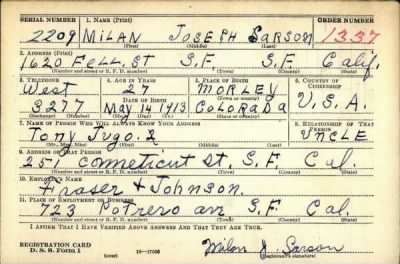 SERIAL NUMBER 1. NAME (Print) ORDER NUMBER
2209 MILAN JOSEPH SARSON 1337
(First) (Middle) (Last)
2. ADDRESS (Print)
1620 FELL, ST S.F. S.F. Calif.
(Number and street or R. F. D. number) (Town) (County) (State)
3. TELEPHONE 4. AGE IN YEARS 5. PLACE OF BIRTH 6. COUNTRY OF CITIZENSHIP
West 27 MORLEY
DATE OF BIRTH (Town or county)
3277 May 14 1913 COLORADO U.S.A.
(Exchange) (Number) (Mo.) (Day) (Yr.) (State or country)
7. NAME OF PERSON WHO WILL ALWAYS KNOW YOUR ADDRESS 8. RELATIONSHIP OF THAT PERSON
Tony UNCLE
(Mr., Mrs., Miss) (First) (Middle) (Last)
9. ADDRESS OF THAT PERSON
251 Conneticut St. S.F. Cal.
(Number and street or R. F. D. number) (Town) (County) (State)
10. EMPLOYER'S NAME
Fraser & Johnson.
11. PLACE OF EMPLOYMENT OR BUSINESS
723 Potrero av S.F. Cal.
(Number and street or R. F. D. number) (Town) (County) (State)
I AFFIRM THAT I HAVE VERIFIED ABOVE ANSWERS AND THAT THEY ARE TRUE.
REGISTRATION CARD
D. S. S. Form 1 (over) 16—17105 Milan J. Sarson
(Registrant's signature)